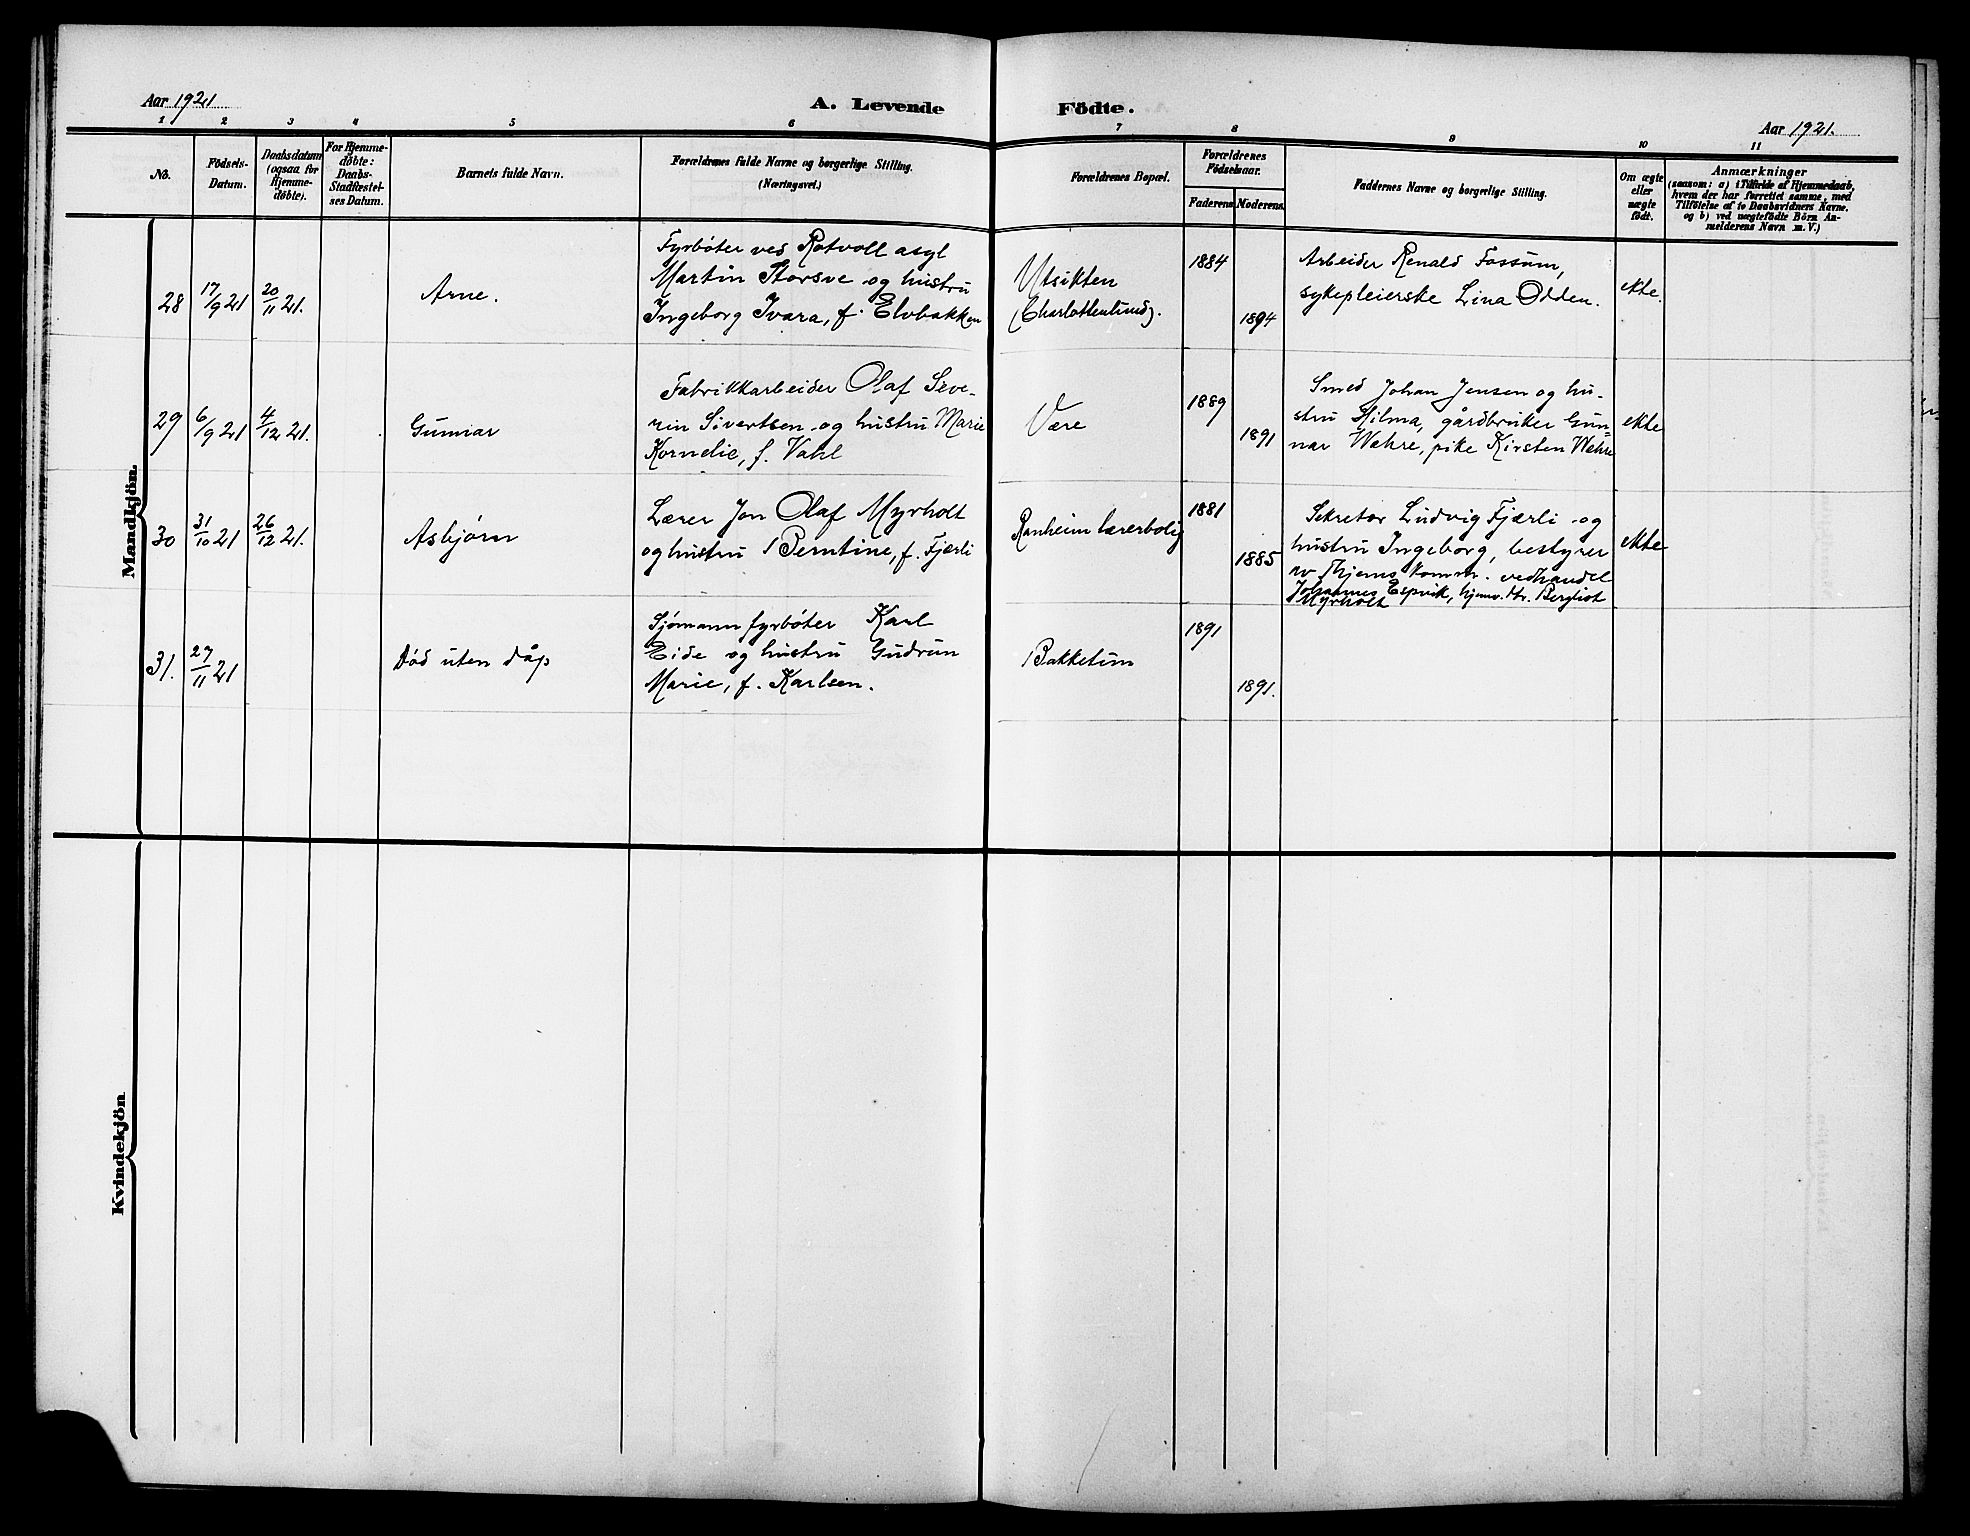 Aar 1921
A. Levende Födte.
Aar 1921.
1 2 3 4 5 6 7 8 9 10 11
No.
Födsels-
Datum.
Daabsdatum
(ogsaa for
Hjemme-
døbte).
For Hjemme-
døbte:
Daabs-
Stadfæstel-
ses Datum.
Barnets fulde Navn.
Forældrenes fulde Navne og borgerlige Stilling.
(Næringsvei.)
Forældrenes Bopæl.
Forældrenes
Födselsaar.
Faderens
Moderens
Faddernes Navne og borgerlige Stilling.
Om ægte
eller
uægte
födt.
Anmærkninger
(saasom: a) i Tilfælde af Hjemmedaab,
hvem der har forrettet samme, med
Tilföielse af to Daabsvidners Navne.
og b) ved uægtefödte Börn An-
melderens Navn m. V.)
Mandkjön.
28 17/9 21 20/11 21.
Arne.
Fyrbøter ved Rotvoll asyl
Martin Storsve og hustru
Ingeborg Ivara, f. Elvbakken
Utsikten
(Charlottenlund).
1884
1894
Arbeider Renald Fossum,
sykepleierske Lina Odden.
ekte.
29 6/9 21 4/12 21.
Gunnar
Fabrikkarbeider Olaf Seve-
rin Sivertsen og hustru Marie
Kornelie, f. Vahl
Være
1889
1891
Smed Johan Jensen og hu-
stru Hilma, gårdbruker Gun-
nar Wæhre, pike Kirsten Wæhre
ekte
30 31/10 21 26/12 21.
Asbjørn
Lærer Jon Olaf Myrholt
og hustru Berntine, f. Fjærli
Ranheim lærerbolig
1881
1885
Sekretær Ludvig Fjærli og
hustru Ingeborg, bestyrer
av Thjems komm. vedhandel
Johannes Espvik, hjemv. dtr. Bergliot
Myrholt
ekte
31. 27/11 21
Død uten dåp
Sjømann fyrbøter Karl
Eide og hustru Gudrun
Marie, f. Karlsen.
Bakketun
1891
1891.
Kvindekjön